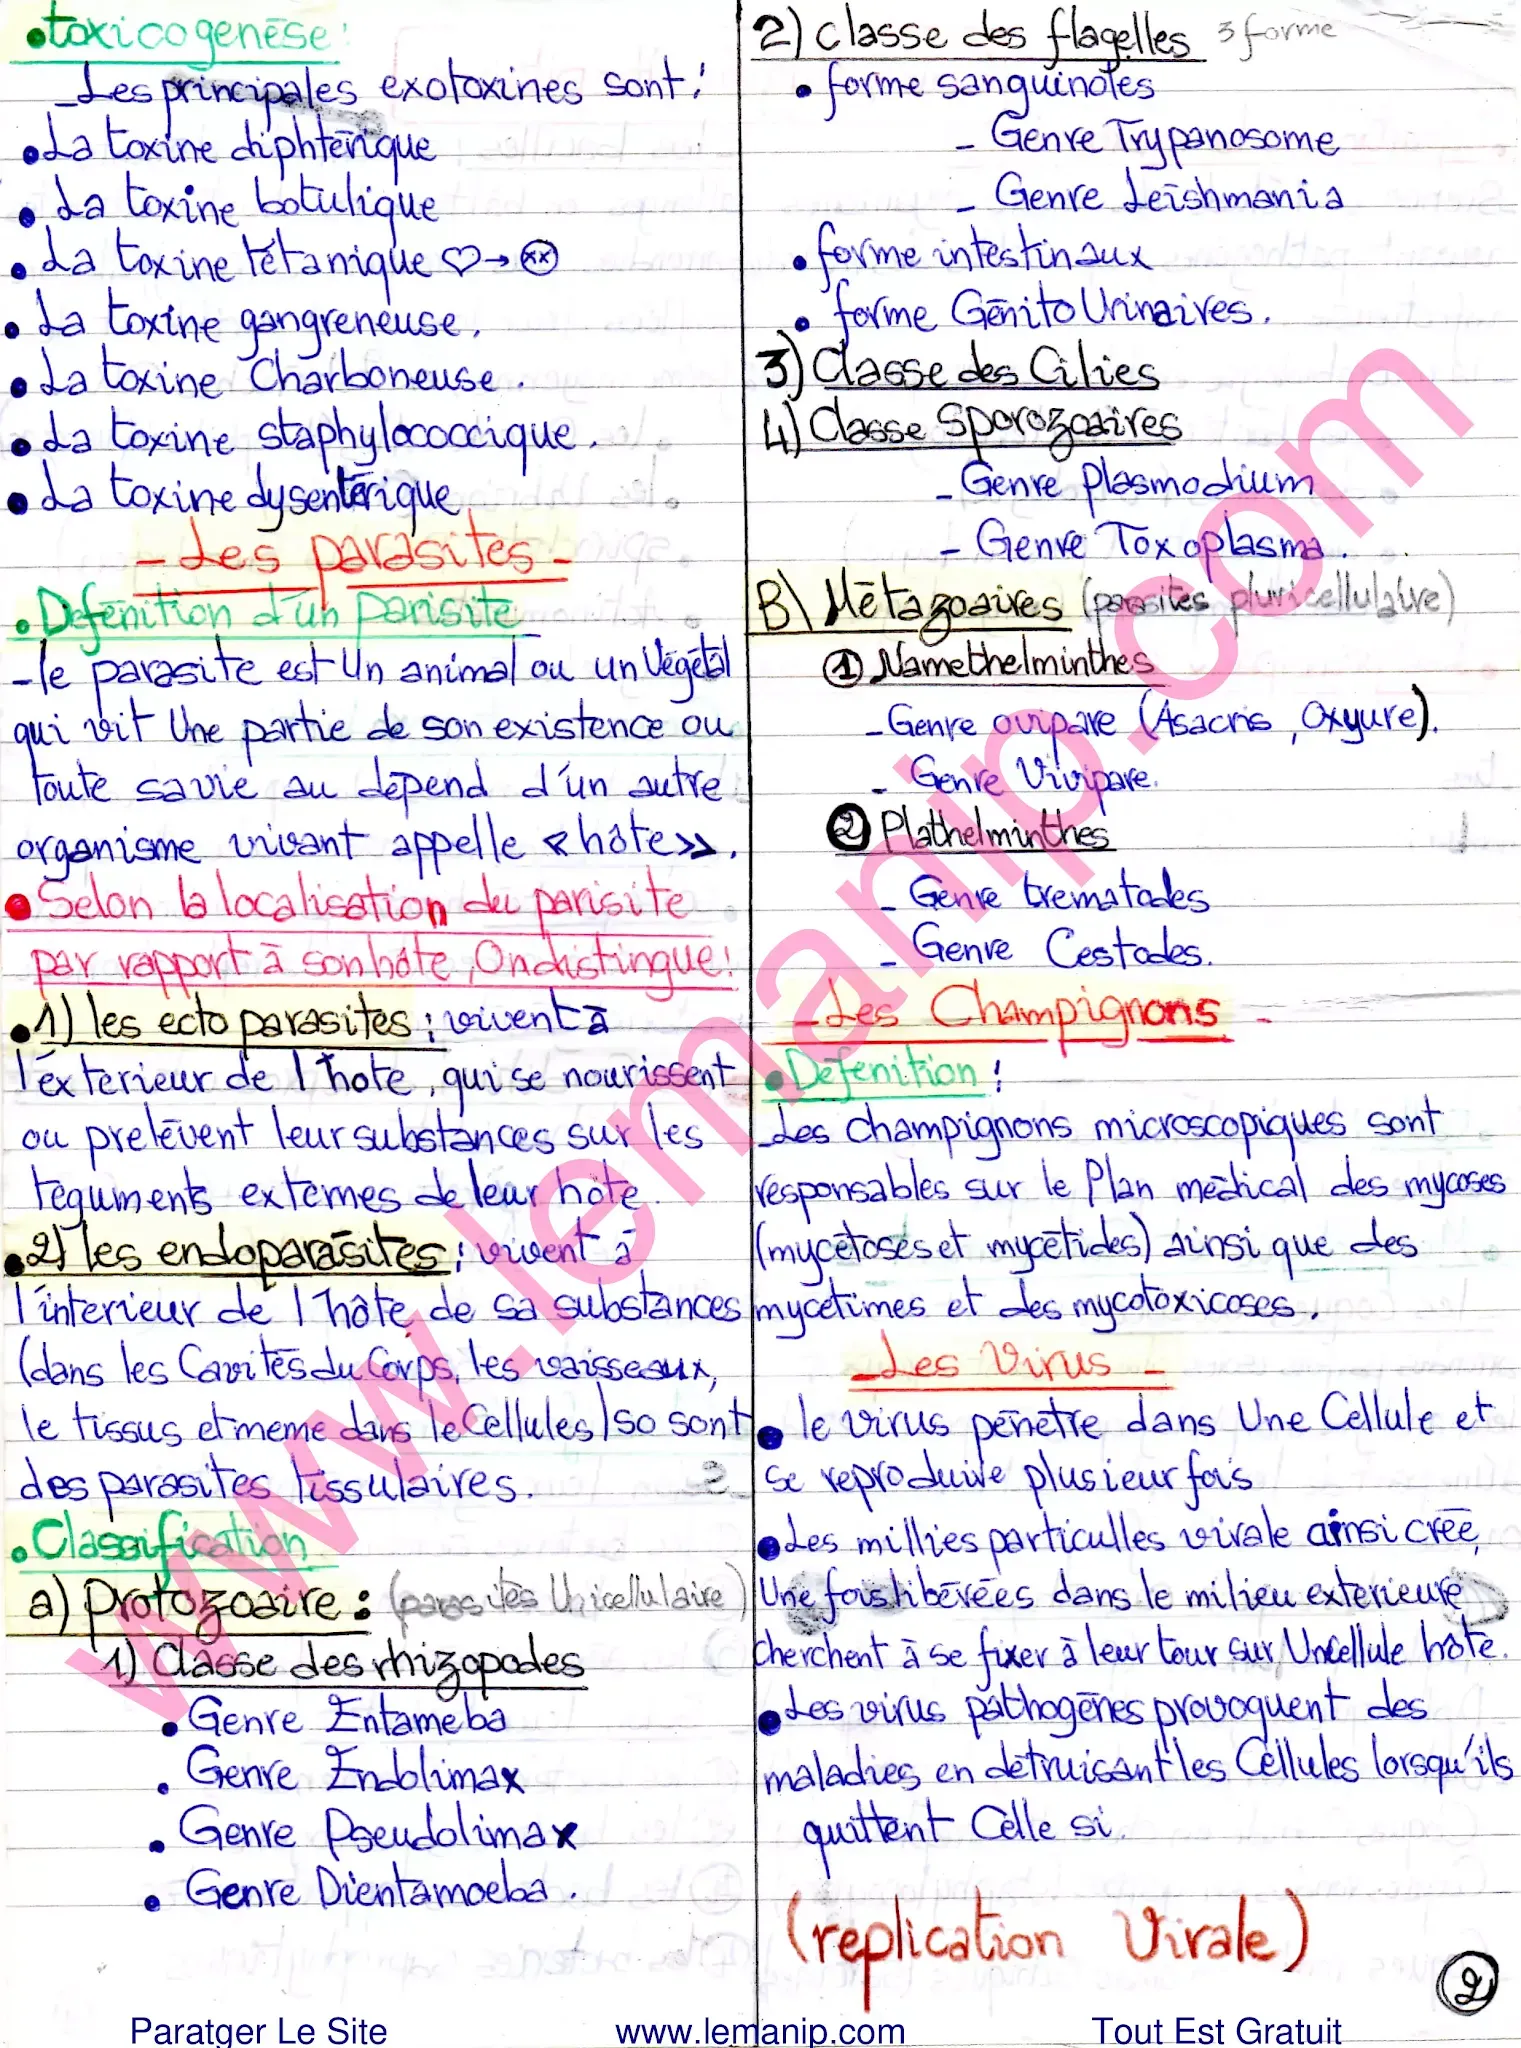 • toxicogenèse :
- Les principales exotoxines sont :
• La toxine diphtérique
• La toxine botulique
• La toxine tétanique ♡→
• La toxine gangreneuse.
• La toxine Charboneuse.
• La toxine staphylococcique.
• La toxine dysentérique
- Les parasites -
• Defénition d'un parisite
- le parasite est Un animal ou un Végétal
qui vit Une partie de son existence ou
toute savie au dépend d'un autre
organisme vivant appelle «hôte».
• Selon la localisation du parisite
par rapport à son hôte, On distingue:
• 1) les ecto parasites : vivent à
l'exterieur de l'hote, qui se nourissent
ou prelèvent leur substances sur les
teguments externes de leur hôte.
• 2) les endoparasites : vivent à
l'interieur de l'hôte de sa substances
(dans les Cavités du Corps, les vaisseaux,
le tissus et meme dans le Cellules) so sont
des parasites tissulaires.
• Classification
a) Protozoaire : (parasites Unicellulaire)
1) Classe des rhizopodes
• Genre Entameba
• Genre Endolimax
• Genre Pseudolimax
• Genre Dientamoeba.
2) classe des flagelles 3 forme
• forme sanguinoles
- Genre Trypanosome
- Genre Leishmania
• forme intestinaux
• forme Génito Urinaires.
3) Classe des Cilies
4) Classe Sporozoaires
- Genre Plasmodium
- Genre Toxoplasma.
B\ Métazoaires (parasites pluricellulaire)
① Namethelminthes
- Genre ovipare (Asacris, Oxyure).
- Genre Vivipare.
② Plathelminthes
- Genre trematodes
- Genre Cestodes.
- Les Champignons -
• Defenition :
Les champignons microscopiques sont
responsables sur le Plan médical des mycoses
(mycétoses et mycétides) ainsi que des
mycetimes et des mycotoxicoses.
- Les Virus -
• le virus pénètre dans Une Cellule et
se reproduire plusieur fois
• Les millies particulles virale ainsi créé,
Une fois libérées dans le milieu exterieure
cherchent à se fixer à leur tour sur Uncellule hôte.
• Les virus pathogènes provoquent des
maladies en détruisant les Cellules lorsqu'ils
quittent Celle si.
(replication Virale)
2
www.lemanip.com
Paratger Le Site www.lemanip.com Tout Est Gratuit